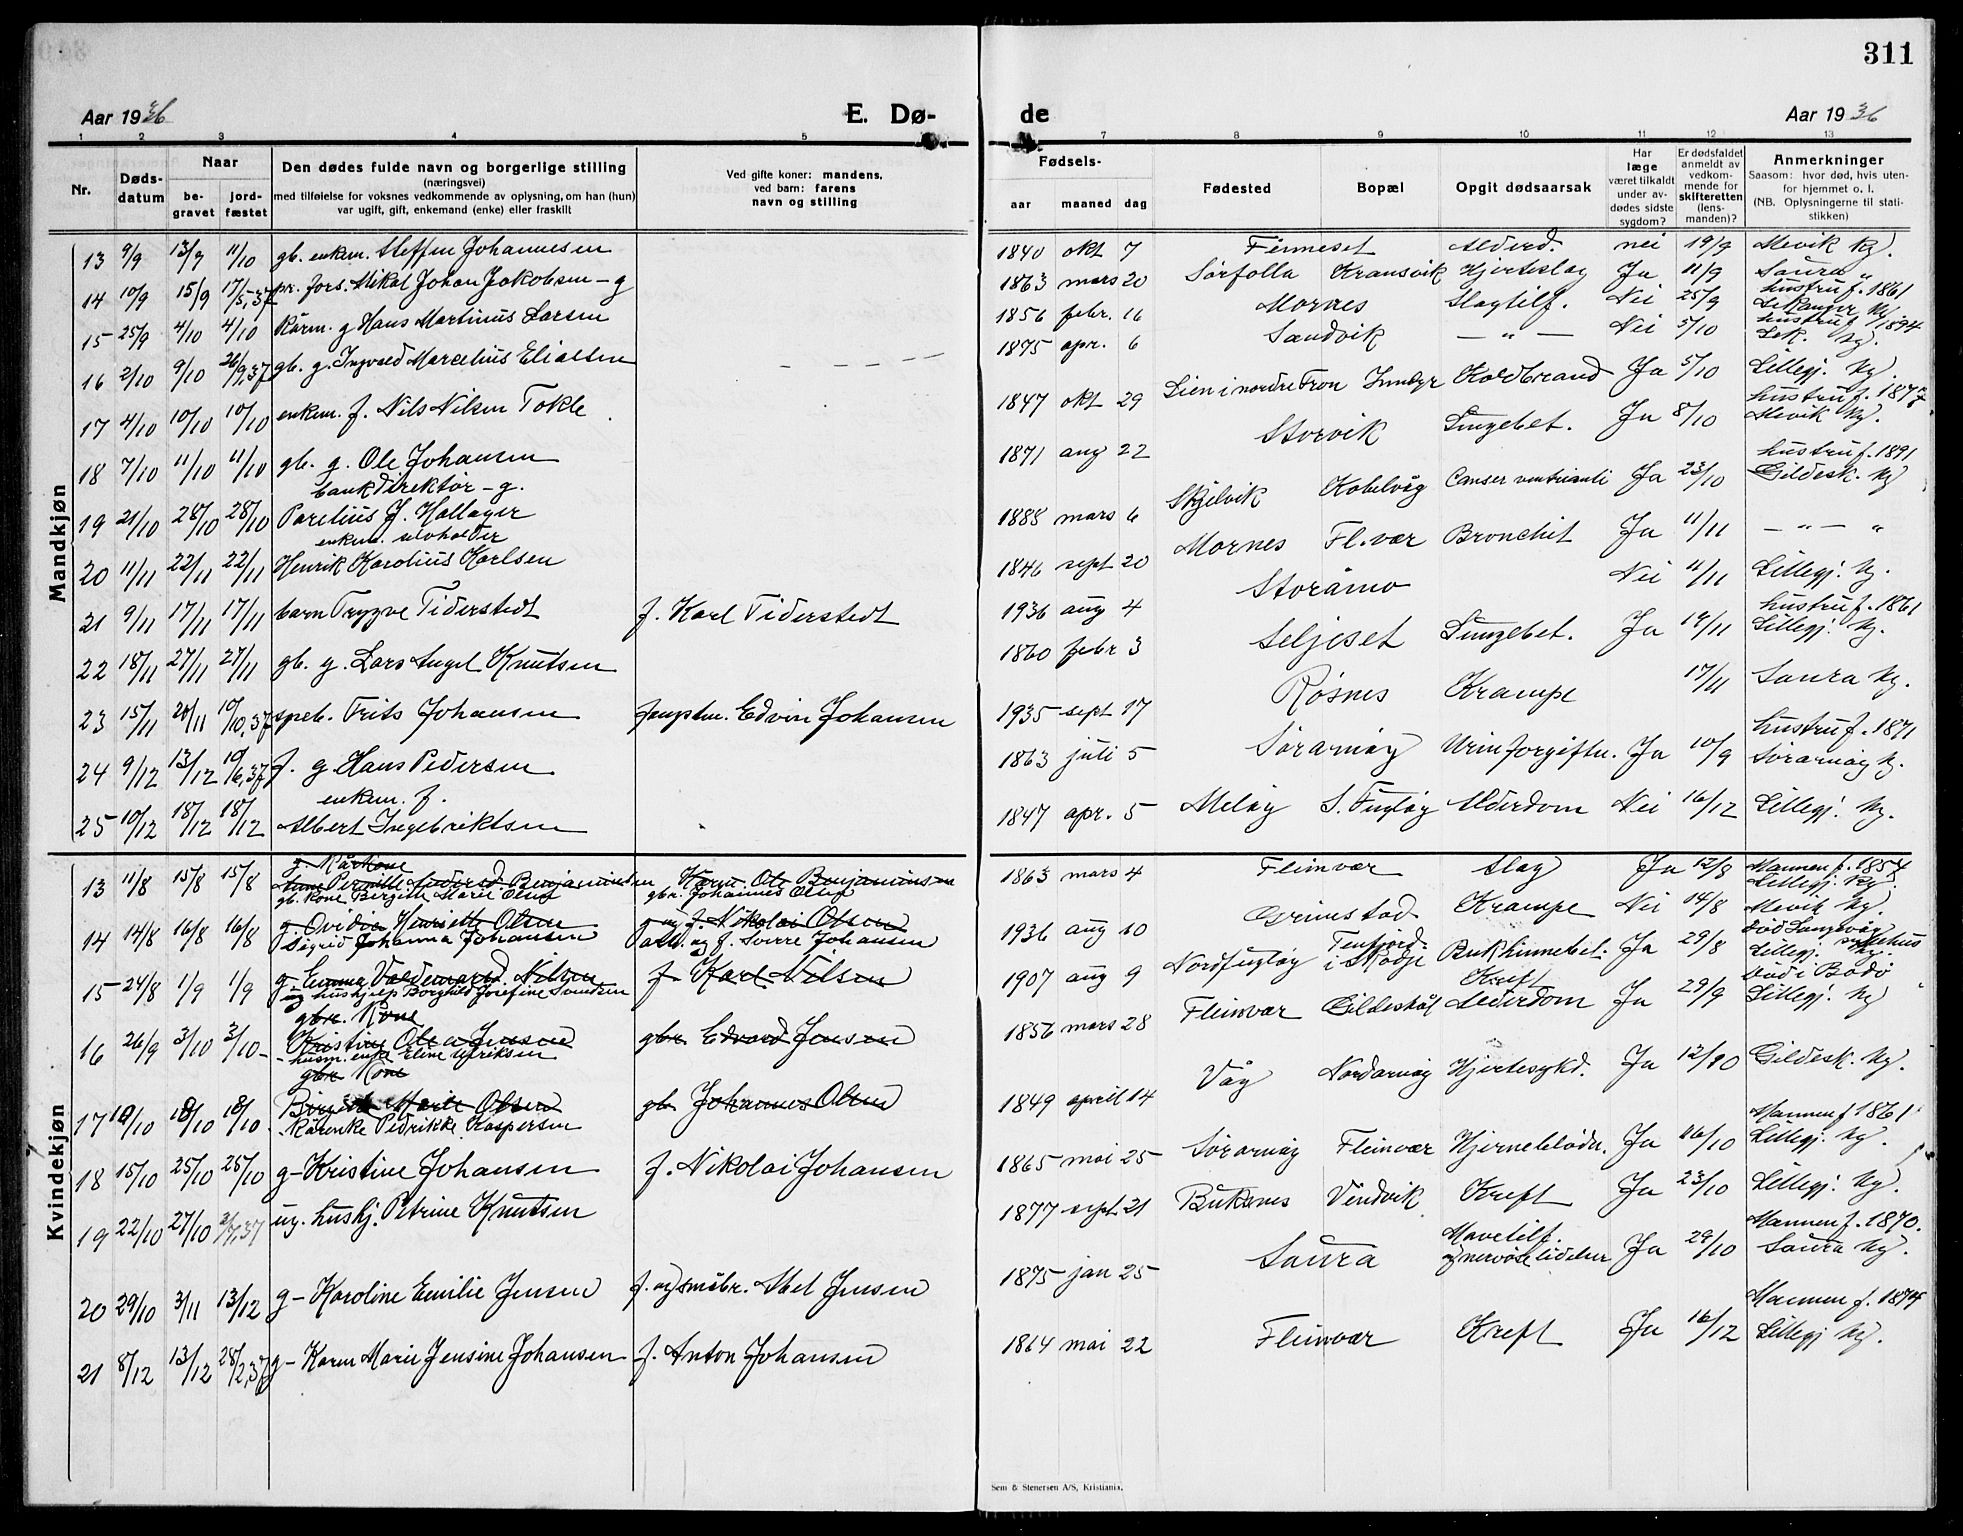 311
Aar 1936
E. Dø-
de
Aar 1936
1 2 3 4 5 7 8 9 10 11 12 13
Nr.
Døds-
datum
Naar
be-
gravet
jord-
fæstet
Den dødes fulde navn og borgerlige stilling
(næringsvei)
med tilføielse for voksnes vedkommende av oplysning, om han (hun)
var ugift, gift, enkemand (enke) eller fraskilt
Ved gifte koner: mandens,
ved barn: farens
navn og stilling
Fødsels-
aar maaned dag
Fødested
Bopæl
Opgit dødsaarsak
Har
læge
været tilkaldt
under av-
dødes sidste
sygdom?
Er dødsfaldet
anmeldt av
vedkom-
mende for
skifteretten
(lens-
manden)?
Anmerkninger
Saasom: hvor død, hvis uten-
for hjemmet o. l.
(NB. Oplysningerne til stati-
stikken)
Mandkjøn
13 9/9 13/9 11/10 gb. enkem. Steffen Johannesen 1840 okt 7 Finneset Alderd. nei 19/9 Mevik kg.
14 10/9 15/9 17/5,37 pr. fors. Mikal Johan Jakobsen - g 1863 mars 20 Sørfolla Kransvik Hjerteslag Ja 11/9 Saura "
hustru f. 1861
15 25/9 4/10 4/10 Kårm. g Hans Martinus Larsen 1856 febr. 16 Mornes Slagtilf. Nei 25/9
hustru f 1894
16 2/10 9/10 26/9,37 gb. g. Ingvald Marcelius Eliassen 1875 apr. 6 Sandvik — " — Nei 5/10
17 4/10 10/10 10/10 enkem. f. Nils Nilsen Tokle 1847 okt 29 Lien i nordre Fron Inndyr Koldbrand Ja 5/10 Lillegj. kg.
hustru f. 1877
18 7/10 11/10 11/10 gb. g. Ole Johansen 1871 aug 22 Storvik Lungebet. Ja 8/10 Mevik kg.
hustru f. 1891
bankdirektør - g.
19 21/10 28/10 28/10 Parelius J. Hallager 1888 mars 6 Skjelvik Kobelvåg Canser ventrianli Ja 23/10 Gildesk. kg
enkem. selvholder
20 11/11 22/11 22/11 Henrik Karolius Karlsen 1846 sept 20 Mornes Fl.vær Bronchit Ja 11/11 — " — "
21 9/11 17/11 17/11 barn Trygve Tiderstedt f. Karl Tiderstedt 1936 aug 4 Storåmo Nei 11/11 Lillegj. kg.
hustru f. 1861
22 18/11 27/11 27/11 gb. g. Lars Angel Knutsen 1860 febr 3 Seljeset Lungebet. Ja 19/11 Lillegj. kg.
23 15/11 20/11 10/10,37 speb. Frits Johansen Edvin Johansen 1935 sept 17 Røsnes Krampe 17/11 Saura kg.
hustru f. 1871
24 9/12 13/12 10/6,37 f. g Hans Pedersen 1863 juli 5 Sørarnøy Urinforgiftn. Ja 10/9 Sørarnøy k.
enkem. f.
25 10/12 18/12 18/12 Albert Ingebriktsen 1847 apr. 5 Meløy S. Fugløy Alderdom Nei 16/12 Lillegj. kg.
Kvindekjøn
g. Kårkone
Mannen f. 1854
13 11/8 15/8 15/8 Anne Pernille Benjaminsen Kårm. Ole Benjaminsen 1863 mars 4 Fleinvær Slag Ja 12/8 Lillegj. kg.
gb. kone Birgitte Marie Olsen gbr. Johannes Olsen
14 14/8 16/8 16/8 g. Ovidia Henriette Olsen g og f. Nikolai Olsen 1936 aug 10 Grimstad Krampe Nei 14/8 Mevik kg.
Sigrid Johanna Johansen arb. og f. Sverre Johansen
15 24/8 1/9 1/9 g. Emma Valdemarsd. Nilsen f. Karl Nilsen 1907 aug 9 Nordfugløy Tenfjord i Skodje Bukhinnebet. Ja 29/8 Lillegj. kg.
ug hushjelp Borghild Josefine Svendsen
Kreft
død i Bodø
gbr. Kone
16 26/9 3/10 3/10 - Kristine Olea Jensen gbr. Edvard Jensen 1856 mars 28 Fleinvær Gildeskål Alderdom Ja 29/9 Lillegj. kg
- husm. enke Eline Ulriksen
gbr Kone
17 10/10 18/10 18/10 Birgitte Marie Olsen gb Johannes Olsen 1849 april 14 Våg Nordarnøy Hjertesykd. Ja 12/10 Gildesk. kg.
- Kårenke Pedrikke Kaspersen
Mannen f 1861
18 15/10 25/10 25/10 g - Kristine Johansen f. Nikolai Johansen 1865 mai 25 Sørarnøy Fleinvær Hjerneblødn. Ja 16/10 Lillegj. kg.
19 22/10 27/10 2/7,37 ug. hushj. Petrine Knutsen 1877 sept 21 Buksnes Vindvik Kreft Ja 23/10 Lillegj. kg.
Mannen f. 1870.
20 29/10 3/11 13/12 g - Karoline Emilie Jensen f. og småbr. Abel Jensen 1875 jan 25 Saura Mavetilf. og nervøse lidelser Ja 29/10 Saura kg.
Mannen f. 1874
21 8/12 13/12 28/2,37 g - Karen Marie Jensine Johansen f. Anton Johansen 1864 mai 22 Fleinvær Kreft Ja 16/12 Lillegj kg.
Sem & Stenersen A/S, Kristiania.